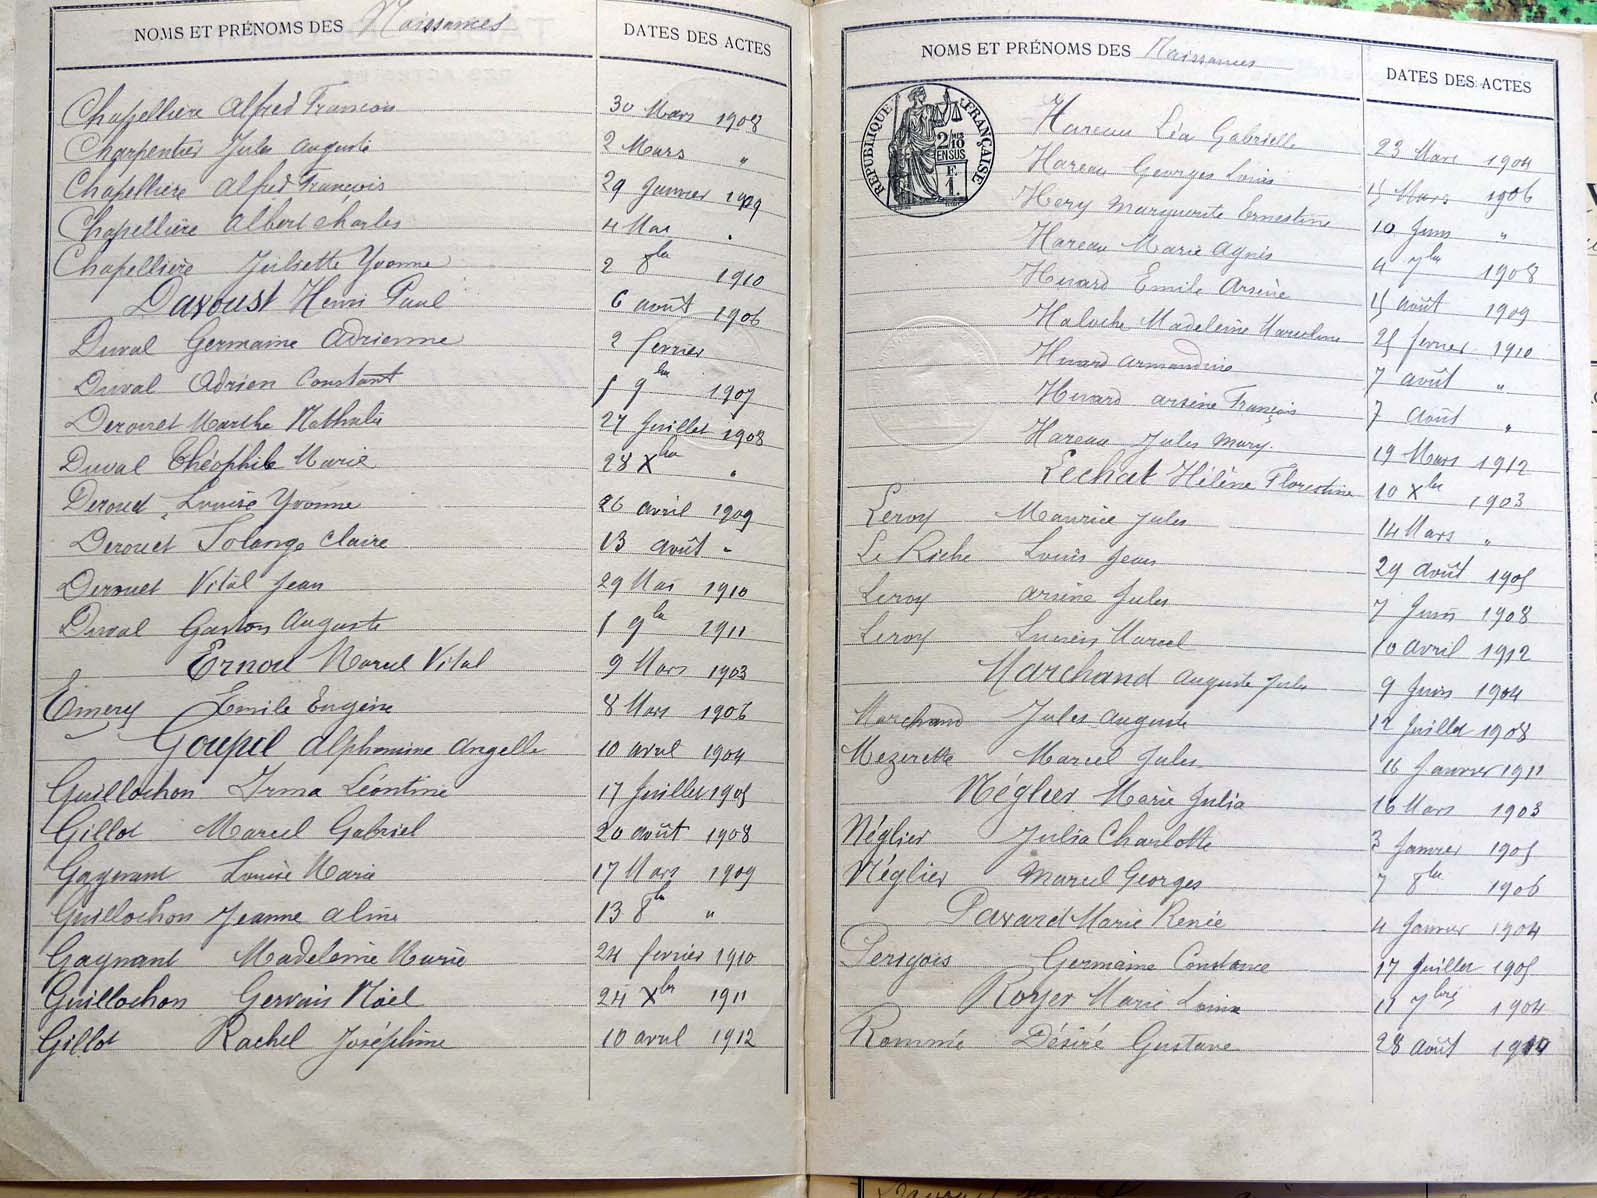 NOMS ET PRÉNOMS DES Naissances DATES DES ACTES
Chapellière Alfred François 30 Mars 1908
Charpentier Jules Auguste 2 Mars "
Chapellière Alfred François 29 Janvier 1909
Chapellière Albert Charles 4 Mai "
Chapellière Juliette Yvonne 2 8bre 1910
Davoust Henri Paul 6 août 1906
Duval Germaine Adrienne 2 février
Duval Adrien Constant 1 9bre 1907
Derouet Marthe Nathalie 27 Juillet 1908
Duval Théophile Marie 28 Xbre "
Derouet Louise Yvonne 26 avril 1909
Derouet Solange Claire 13 août "
Derouet Vital Jean 29 Mai 1910
Duval Gaston Auguste 1 9bre 1911
Ernou Marcel Vital 9 Mars 1903
Emery Emile Eugène 8 Mars 1906
Goupil Alphonsine Angelle 10 avril 1904
Guillochon Irma Léontine 17 Juillet 1905
Gillot Marcel Gabriel 20 août 1908
Gagnant Louise Marie 17 Mars 1909
Guillochon Jeanne Aline 13 8bre "
Gagnant Madeleine Marie 24 février 1910
Guillochon Gervais Noël 24 Xbre 1911
Gillot Rachel Joséphine 10 avril 1912
NOMS ET PRÉNOMS DES Naissances DATES DES ACTES
RÉPUBLIQUE FRANÇAISE
2/10 EN SUS
F. 1.
Hareau Léa Gabrielle 23 Mars 1904
Hareau Georges Louis 15 Mars 1906
Hery Marguerite Ernestine 10 Juin "
Hareau Marie Agnès 4 7bre 1908
Huard Emile Arsène 15 août 1909
Haloche Madeleine 25 février 1910
Huard Armandine 7 août "
Huard Arsène François 7 août "
Hareau Jules Mary. 19 Mars 1912
Lechat Hélène Florestine 10 Xbre 1903
Leroy Maurice Jules 14 Mars "
Le Riche Louis Jean 29 août 1905
Leroy Arsène Jules 7 Juin 1908
Leroy Lucien Marcel 10 avril 1912
Marchand Auguste Jules 9 Juin 1904
Marchand Jules Auguste 12 Juillet 1908
Mezerette Marcel Jules 16 Janvier 1911
Néglier Marie Julia 16 Mars 1903
Néglier Julia Charlotte 3 Janvier 1905
Néglier Marcel Georges 7 8bre 1906
Pavard Marie Renée 4 Janvier 1904
Perigois Germaine Constance 17 Juillet 1905
Royer Marie Louise 11 7bre 1904
Rommé Désiré Gustave 28 août